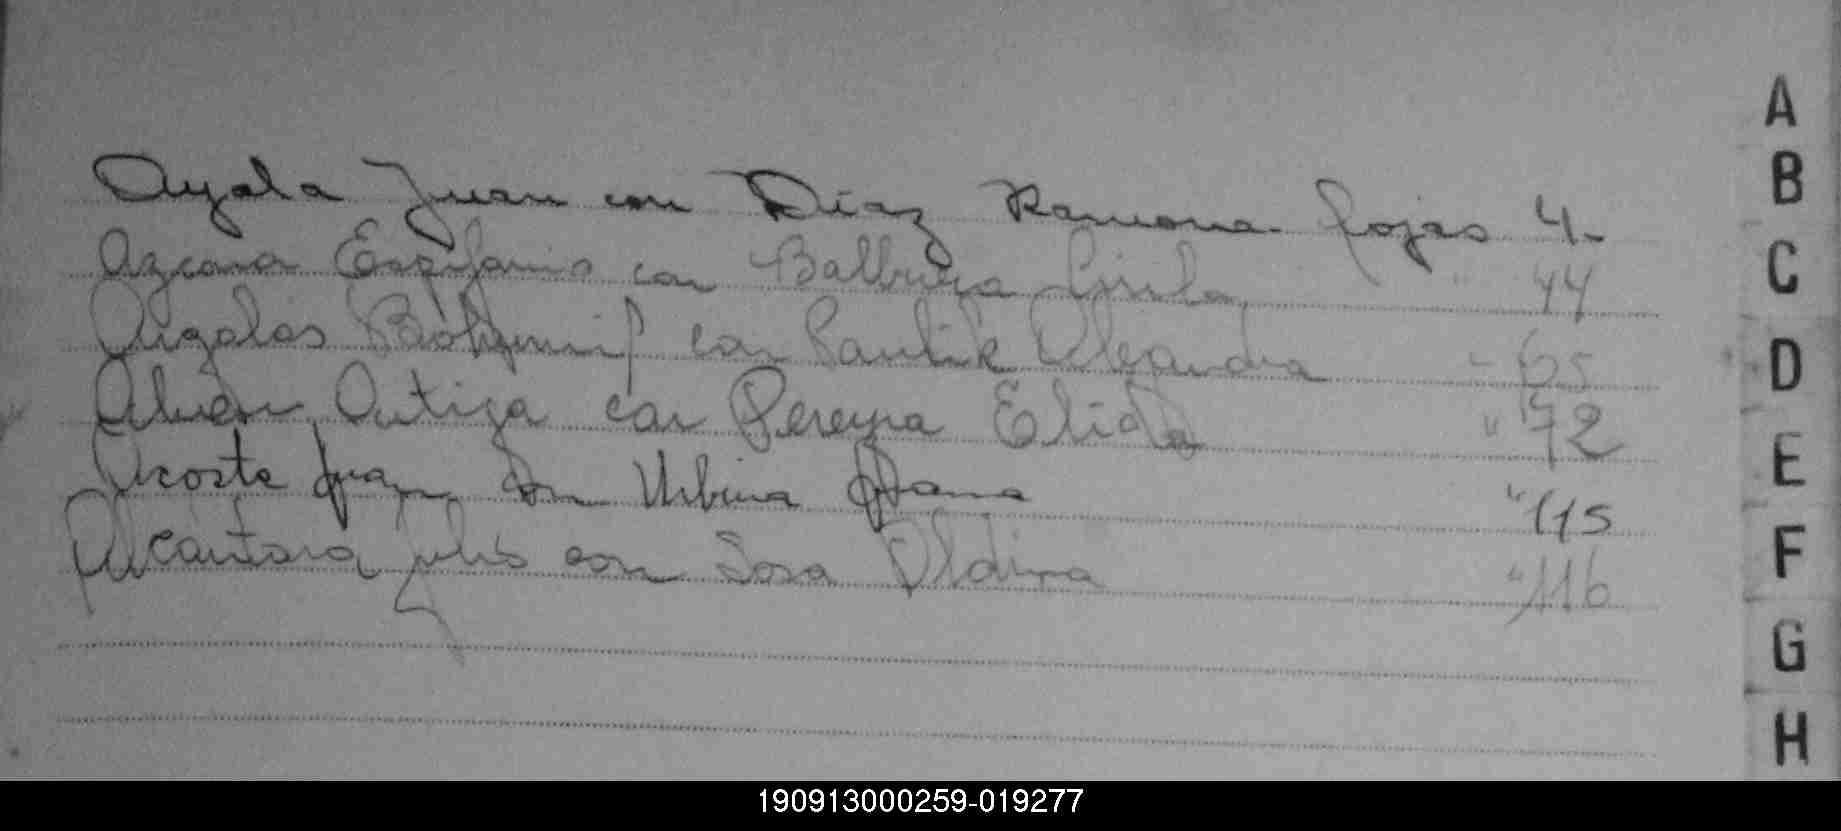 Ayala Juan con Díaz Ramona. fojas 4.
Azcona Epifanio con Balbuena Cirila " 44
con Alejandra - 65
Ortiza con Pereyra Elida " 72
Acosta Juan con Urbina Juana " 115
Alcantara Julio con Sosa Aldina " 116
A
B
C
D
E
F
G
H
190913000259-019277